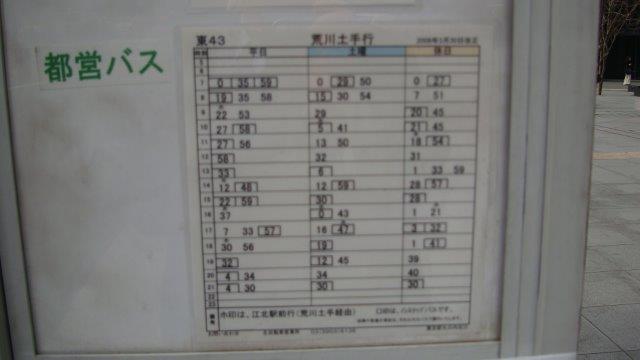 都営バス
東43 荒川土手行 2008年3月30日改正
時刻 平日 土曜 休日
5
6
7 0 35 59 0 29 50 0 27
8 19 35 58 15 30 54 7 51
9 22 53 29 20 45
10 27 58 5 41 21 45
11 27 56 13 50 18 54
12 58 32 31
13 33 6 1 33 59
14 12 48 12 59 28 57
15 22 59 30 28
16 37 0 43 1 21
17 7 33 57 16 47 3 32
18 30 56 19 1 41
19 32 12 45 39
20 4 34 34 40
21 4 30 30 30
22
23
備考 ホ印は、江北駅前行(荒川土手経由) 口印は、ノンステップバスです。
お問い合わせ